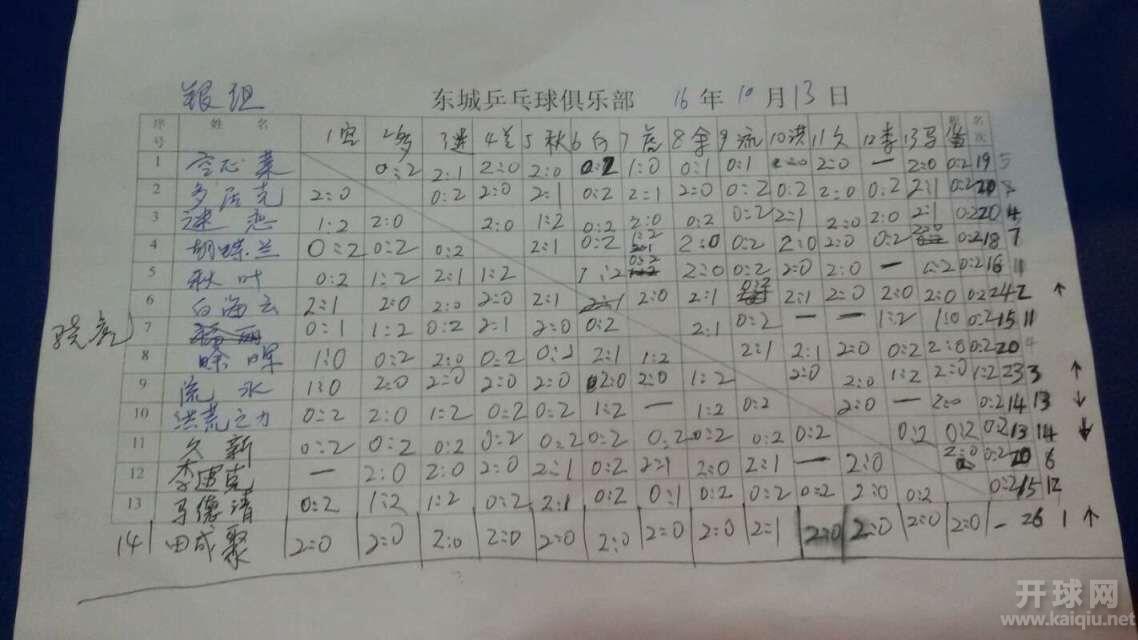 银组 东城乒乓球俱乐部 16年10月13日
序号 姓名 1空 2多 3迷 4兰 5秋 6白 7 8余 9流 10洪 11久 12李 13马 名次
1 空心菜 0:2 2:1 2:0 2:0 0:2 1:0 0:1 0:1 2:0 — 2:0 0:2 19 5
2 多 克 2:0 0:2 2:0 2:1 0:2 2:1 2:0 0:2 0:2 2:0 0:2 2:1 0:2 20
3 迷恋 1:2 2:0 2:0 1:2 0:2 2:0 0:2 0:2 2:1 2:0 2:0 2:1 0:2 20 4
4 胡蝶兰 0:2 0:2 0:2 2:1 0:2 1:2 2:0 0:2 2:0 2:0 0:2 2:0 0:2 18 7
5 秋叶 0:2 1:2 2:1 1:2 1:2 0:2 2:0 0:2 2:0 2:0 — 1:2 0:2 16 11
6 白海云 2:1 2:0 2:0 2:0 2:1 2:0 2:1 2:1 2:0 2:0 2:0 0:2 24 2 ↑
7 0:1 1:2 0:2 2:1 2:0 0:2 2:1 0:2 — — 1:2 1:0 0:2 15 11
8 1:0 0:2 2:0 0:2 0:2 2:1 1:2 2:1 2:1 2:0 0:2 2:0 0:2 20 4
9 流水 1:0 2:0 2:0 2:0 2:0 2:0 2:0 1:2 2:0 2:0 1:2 2:0 1:2 23 3 ↑
10 洪荒之力 0:2 2:0 1:2 0:2 0:2 1:2 — 1:2 0:2 2:0 — 2:0 0:2 14 13 ↓
11 久新 0:2 0:2 0:2 0:2 0:2 0:2 0:2 0:2 0:2 0:2 0:2 0:2 0:2 13 14 ↓
12 李雷克 — 2:0 2:0 2:0 2:1 0:2 2:1 2:0 2:1 — 2:0 2:0 0:2 20 6
13 马德清 0:2 1:2 1:2 0:2 2:1 0:2 0:1 0:2 0:2 0:2 2:0 0:2 0:2 15 12
14 田成聚 2:0 2:0 2:0 2:0 2:0 2:0 2:0 2:0 2:1 2:0 2:0 2:0 2:0 — 26 1 ↑
开球网
www.kaiqiu.net